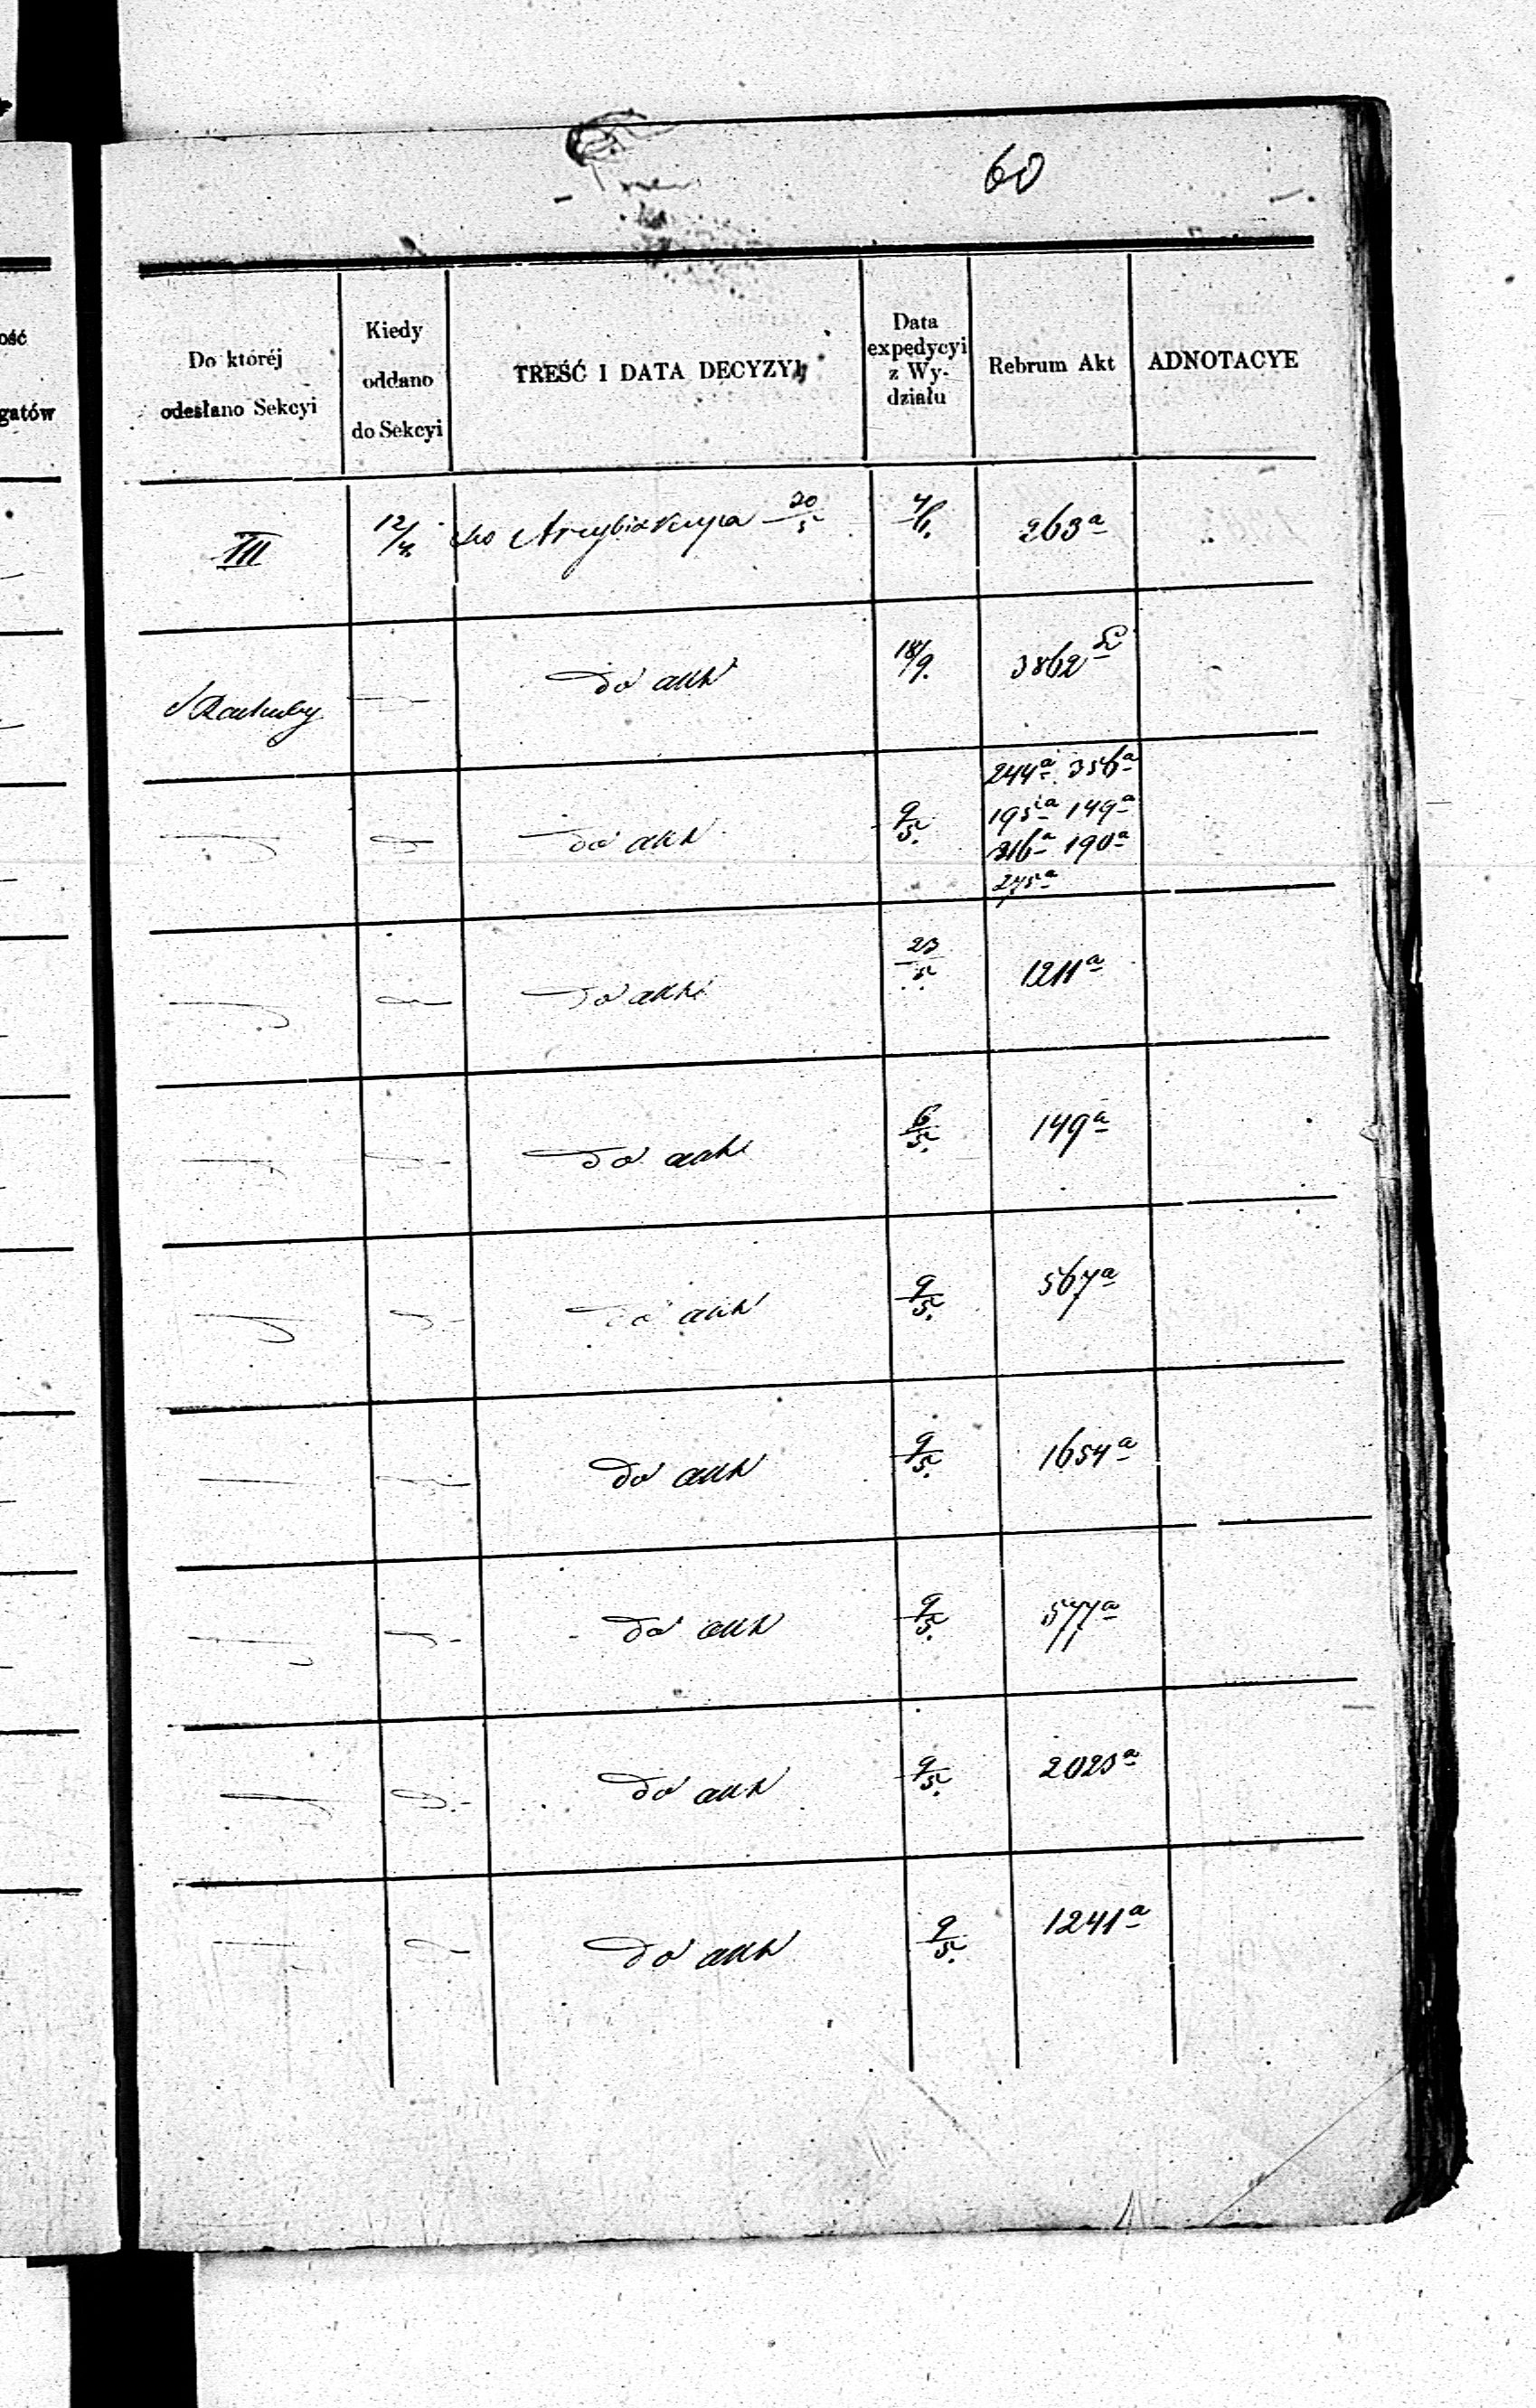 60
ość
gatów
Do któréj
odesłano Sekcyi
Kiedy
oddano
do Sekcyi
TREŚĆ I DATA DECYZYI
Data
expedycyi
z Wy-
działu
Rebrum Akt
ADNOTACYE
III
12/4
do Arcybiskupa 20/5
263 a
Rachuby
do akt
18/9.
3862
do akt
9/5.
244 a 356 a
195 a 149 a
316 a 190 a
275 a
do akt
23/5
1211 a
do akt
6/5.
149 a
do akt
9/5.
567 a
do akt
9/5.
1654 a
do akt
9/5.
577 a
do akt
9/5.
2023 a
do akt
9/5.
1241 a